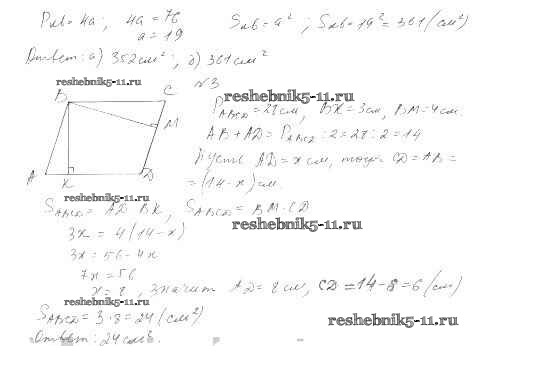 Pкв = 4a; 4a = 76 Sкв = a²; Sкв = 19² = 361 (см²)
a = 19
Ответ: а) 352 см²; б) 361 см²
reshebnik5-11.ru
N3
B C M A K D
reshebnik5-11.ru
P ABCD = 28 см, BK = 3 см, BM = 4 см.
AB + AD = P ABCD : 2 = 28 : 2 = 14
Пусть AD = x см, тогда CD = AB =
= (14 - x) см.
reshebnik5-11.ru
S ABCD = AD · BK, S ABCD = BM · CD
reshebnik5-11.ru
3x = 4(14 - x)
3x = 56 - 4x
7x = 56
x = 8, значит AD = 8 см, CD = 14 - 8 = 6 (см)
reshebnik5-11.ru
S ABCD = 3 · 8 = 24 (см²)
reshebnik5-11.ru
Ответ: 24 см².